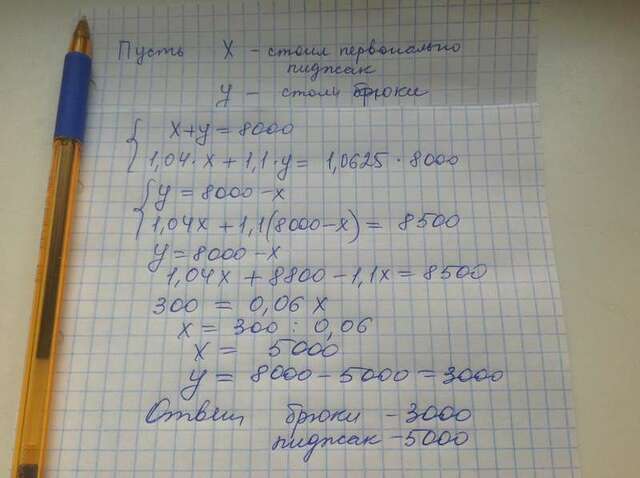 Пусть X - стоил первонально
пиджак
y - столи брюки
x+y = 8000
1,04·x + 1,1·y = 1,0625·8000
y = 8000-x
1,04x + 1,1(8000-x) = 8500
y = 8000-x
1,04x + 8800 - 1,1x = 8500
300 = 0,06 x
x = 300 : 0,06
x = 5000
y = 8000 - 5000 = 3000
Ответ брюки - 3000
пиджак - 5000